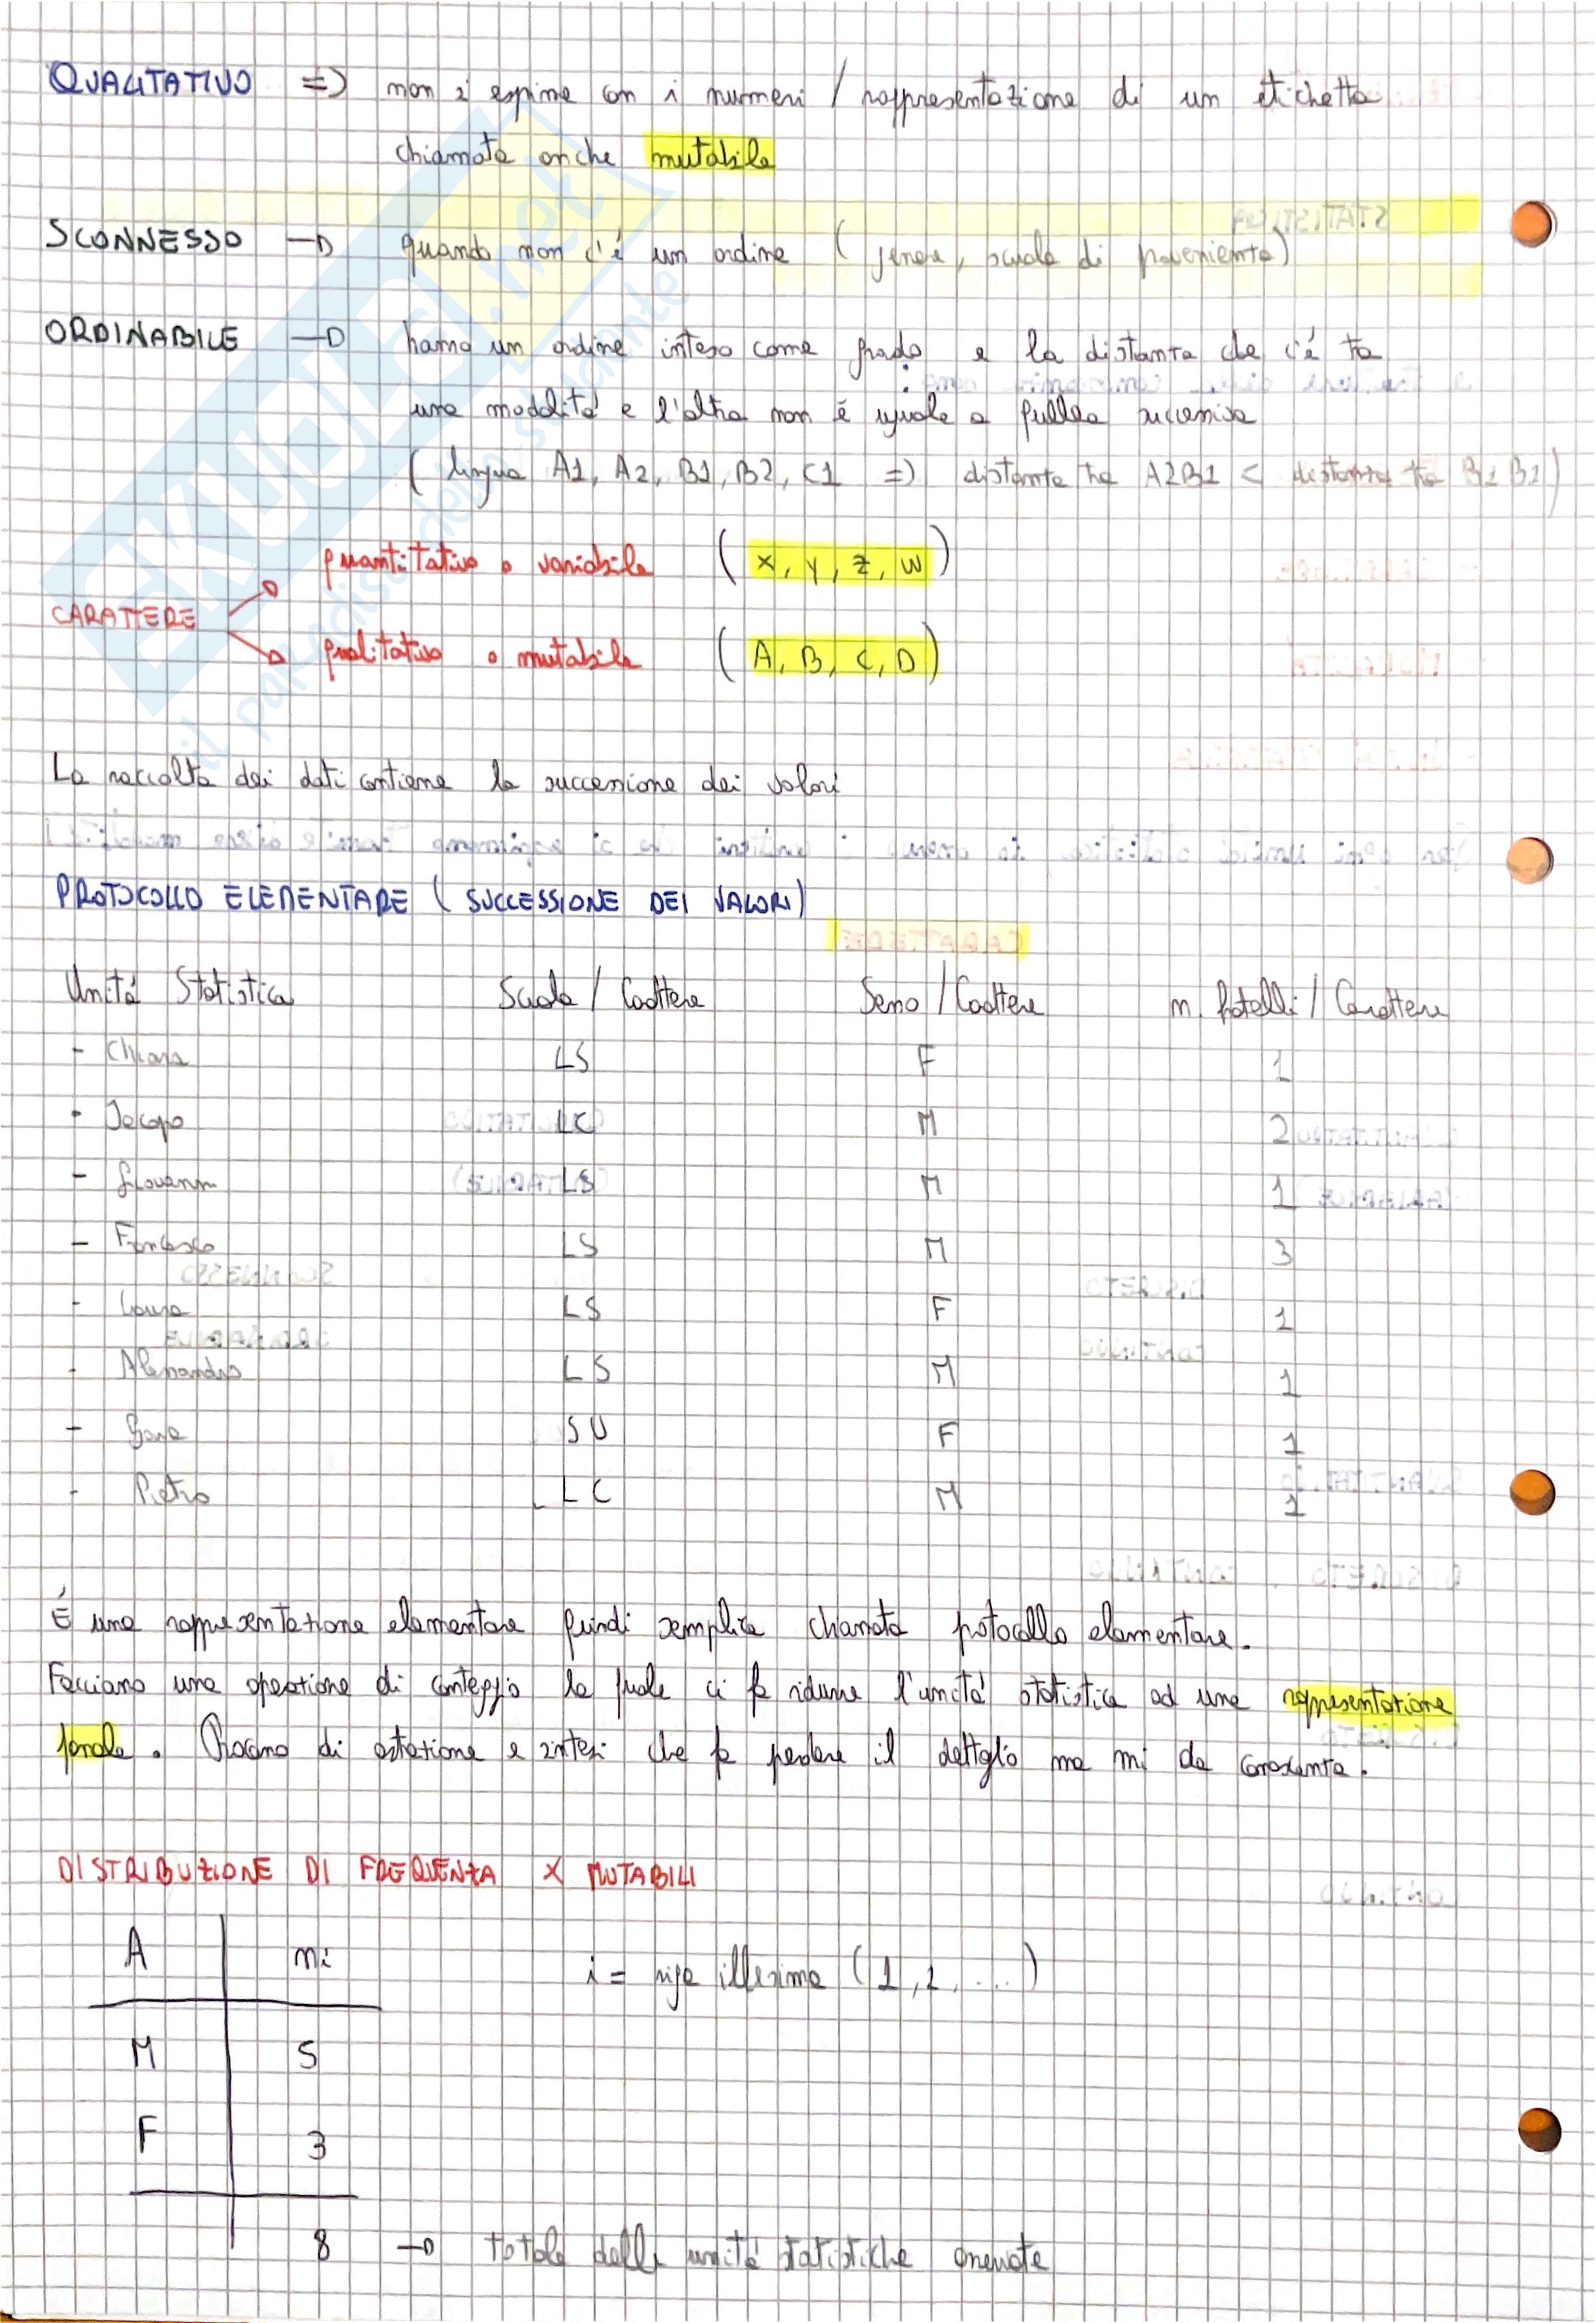 QUALITATIVO => non si esprime con i numeri / rappresentazione di un etichetta
chiamata anche mutabile
SCONNESSO → quando non c'é un ordine ( genere, scuola di provenienza)
ORDINABILE → hanno un ordine inteso come grado e la distanza che c'é tra
una modalitá e l'altra non é uguale a quella successiva
( lingua A1, A2, B1, B2, C1 => distanza tra A2B1 < distanza tra
quantitativo o variabile ( x, y, z, w )
CARATTERE
qualitativo o mutabile ( A, B, C, D )
La raccolta dei dati contiene la successione dei valori
PROTOCOLLO ELEMENTARE ( SUCCESSIONE DEI VALORI)
Unitá Statistica Scuola / Carattere Sesso / Carattere n. fratelli / Carattere
- Chiara LS F 1
- Jacopo LC M 2
- Giovanni LS M 1
- Francesco LS M 3
- Laura LS F 1
- Alessandro LS M 1
- SU F 1
- Pietro LC M 1
É una rappresentazione elementare quindi semplice chiamata protocollo elementare.
Facciamo una operazione di conteggio la quale ci fa ridurre l'unitá statistica ad una rappresentazione
. Processo di astrazione e sintesi che fa perdere il dettaglio ma mi da conoscenza.
DISTRIBUZIONE DI FREQUENZA X MUTABILI
A ni i = riga illesima (1, 2, ...)
M 5
F 3
8 → totale delle unitá statistiche
SKUOLA.net
il paradiso dello studente